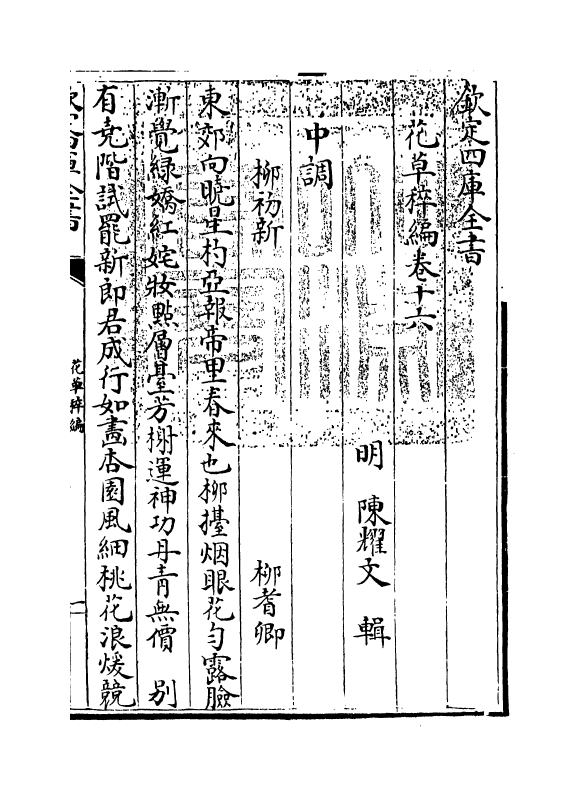 欽定四庫全書
花草稡編卷十六
明 陳耀文 輯
中調
柳初新 柳耆卿
東郊向曉星杓亞報帝里春來也柳擡烟眼花匀露臉
漸覺緑嬌紅姹妝點層臺芳榭運神功丹青無價 别
有堯階試罷新郎君成行如畫杏園風細桃花浪煖競
花草稡編